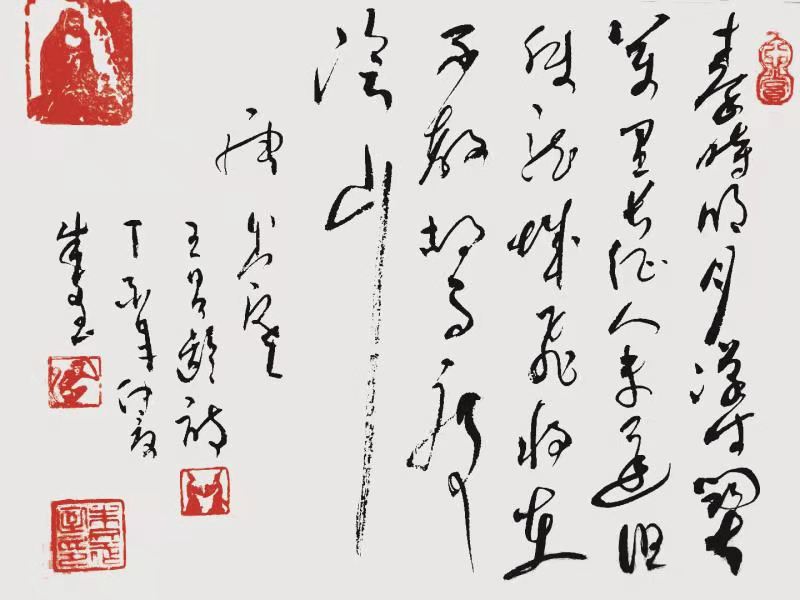 秦時明月漢時關
萬里長征人未還但
使龍城飛將在
不教胡馬度
陰山
唐 出塞
王昌齡詩
丁亥年仲夏